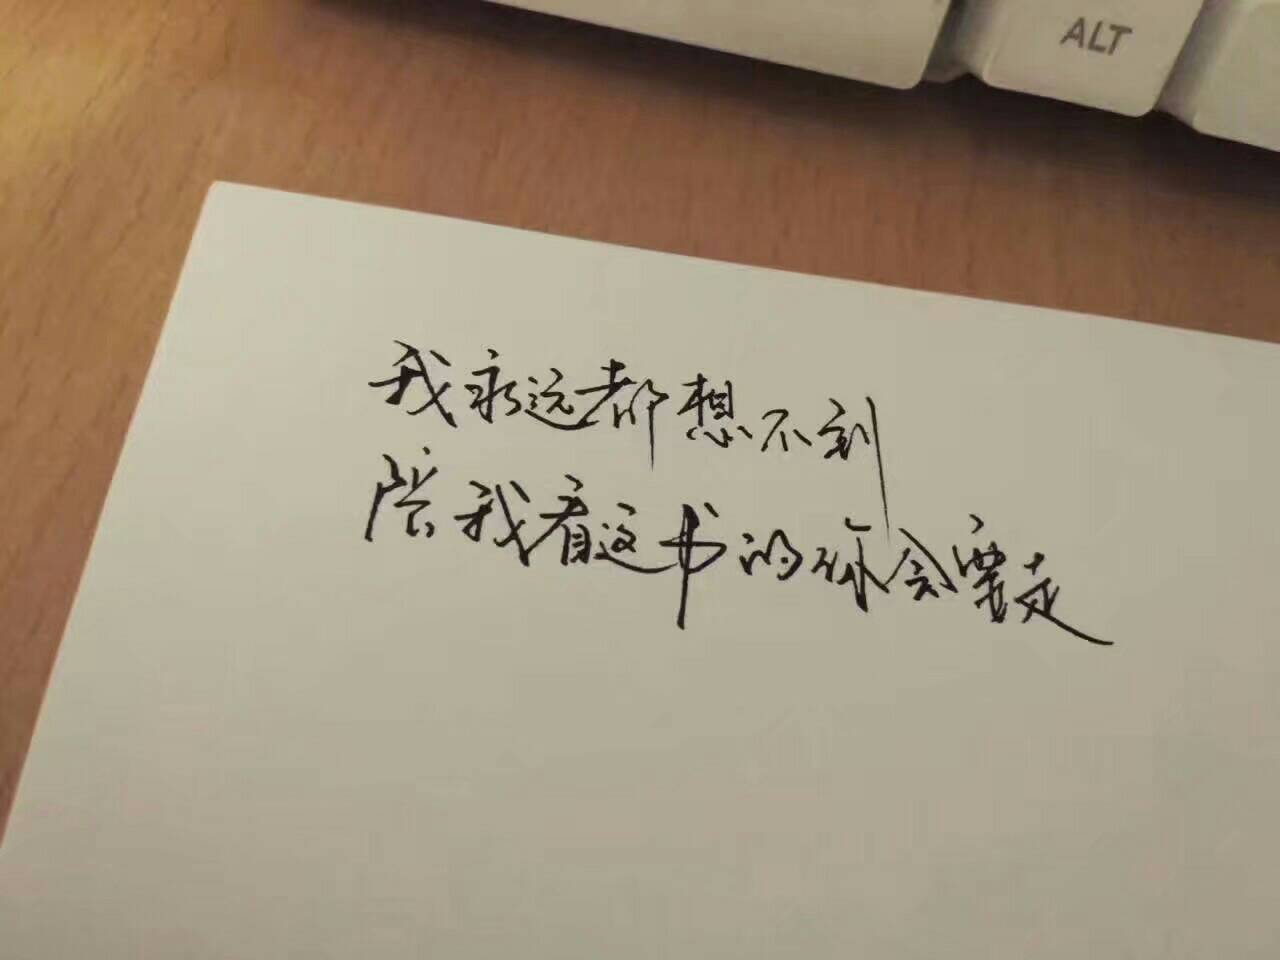 ALT
我永远都想不到
陪我看这书的你会要走